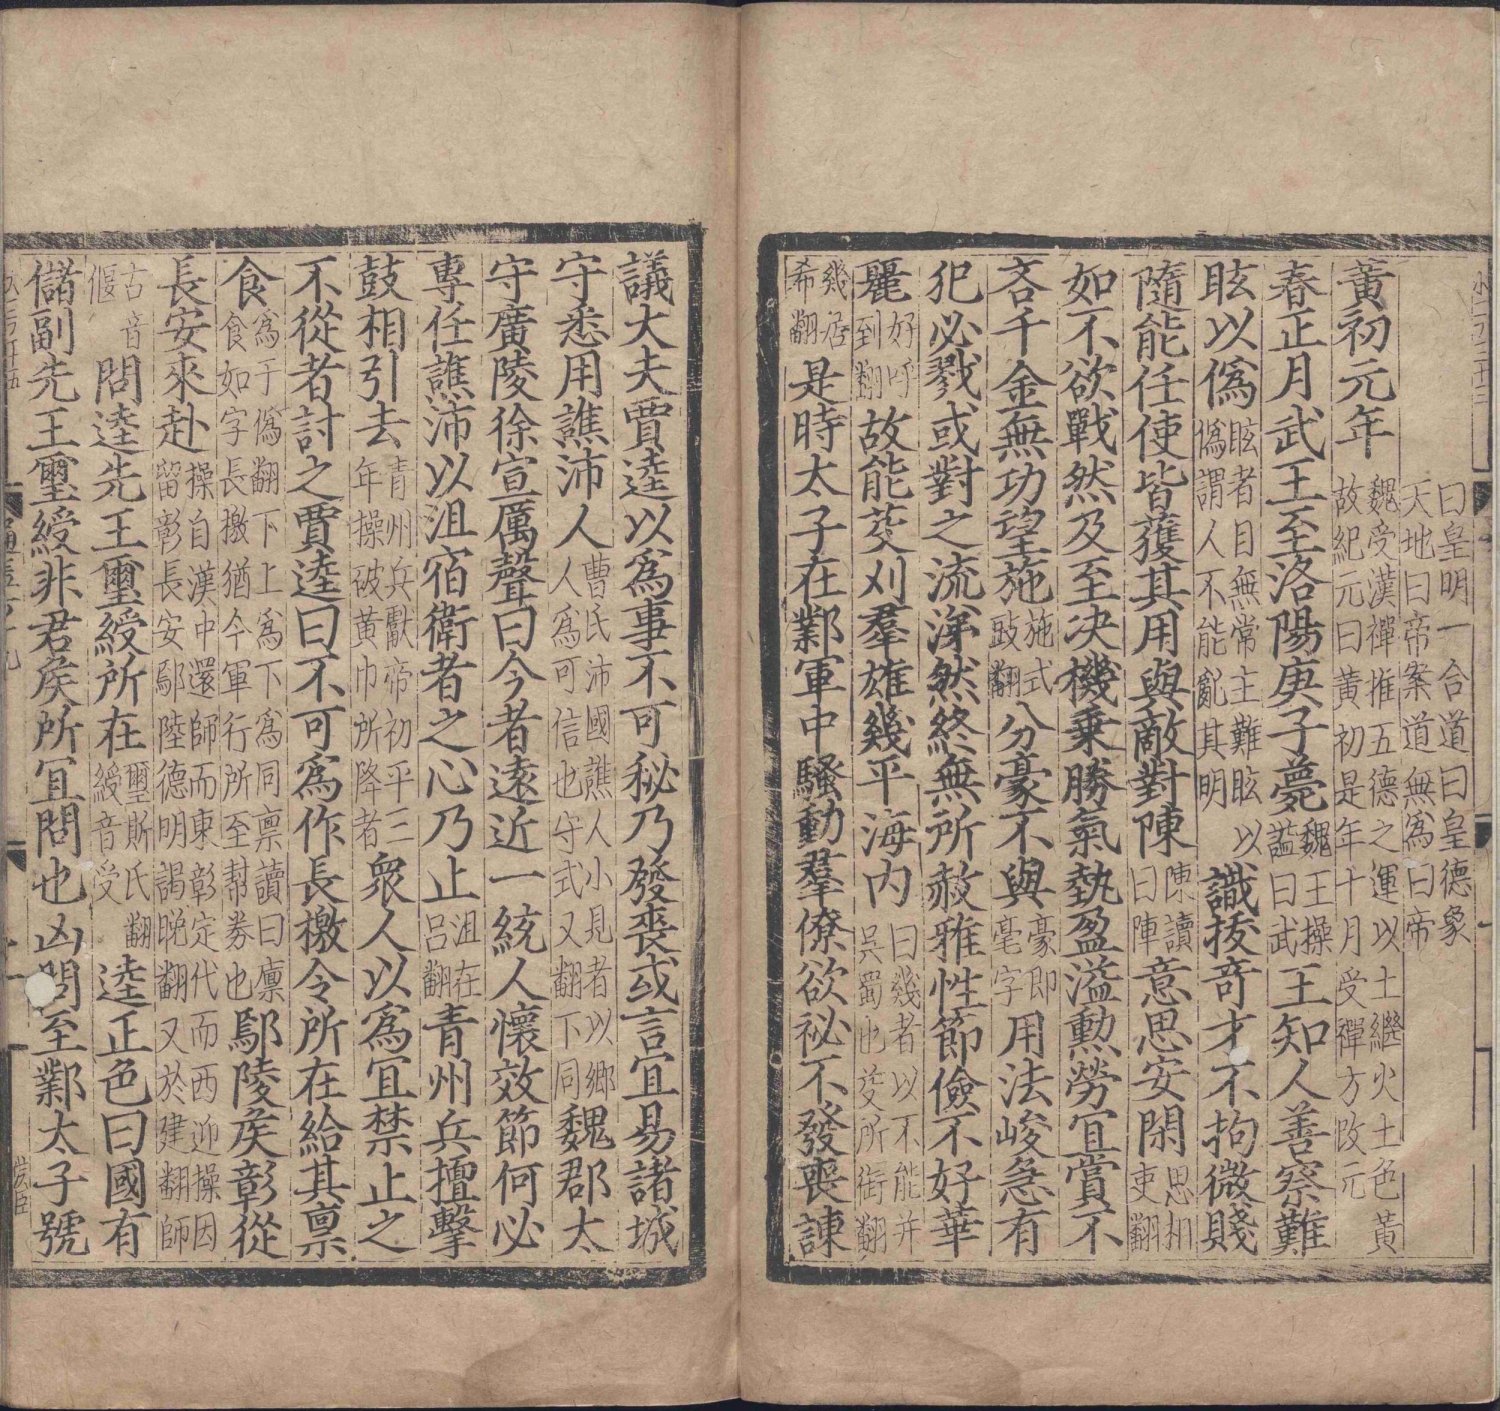 曰皇明一合道曰皇德象
天地曰帝案道無為曰帝
黃初元年魏受漢禪推五德之運以土繼火土色黃
故紀元曰黃初是年十月受禪方改元
春正月武王至洛陽庚子薨魏王操諡曰武王知人善察難
眩以偽眩者目無常主難眩以偽謂人不能亂其明識拔奇才不拘微賤
隨能任使皆獲其用與敵對陳陳讀曰陣意思安閑思相吏翻
如不欲戰然及至决機乗勝氣埶盈溢勲勞宜賞不
吝千金無功望施施式豉翻分豪不與豪即毫字用法峻急有
犯必戮或對之流涕然終無所赦雅性節儉不好華
麗好呼到翻故能芟刈羣雄幾平海内曰幾者以不能并吳蜀也芟所銜翻
幾居希翻是時太子在鄴軍中騷動羣僚欲祕不發喪諫
議大夫賈逵以為事不可秘乃發喪或言宜易諸城
守悉用譙沛人曹氏沛國譙人小見者以鄉人為可信也守式又翻下同魏郡太
守廣陵徐宣厲聲曰今者遠近一統人懷效節何必
專任譙沛以沮宿衛者之心乃止沮在吕翻青州兵擅擊
鼓相引去青州兵獻帝初平三年操破黃巾所降者衆人以為宜禁止之
不從者討之賈逵曰不可為作長檄令所在給其禀
食為于偽翻下上為下為同禀讀曰廪食如字長檄猶今軍行所至幫券也鄢陵侯彰從
長安來赴操自漢中還師而東彰定代而西迎操因留彰長安鄢陸德明謁晚翻又於建翻師
古音偃問逵先王璽綬所在璽斯氏翻綬音受逵正色曰國有
儲副先王璽綬非君侯所宜問也凶問至鄴太子號